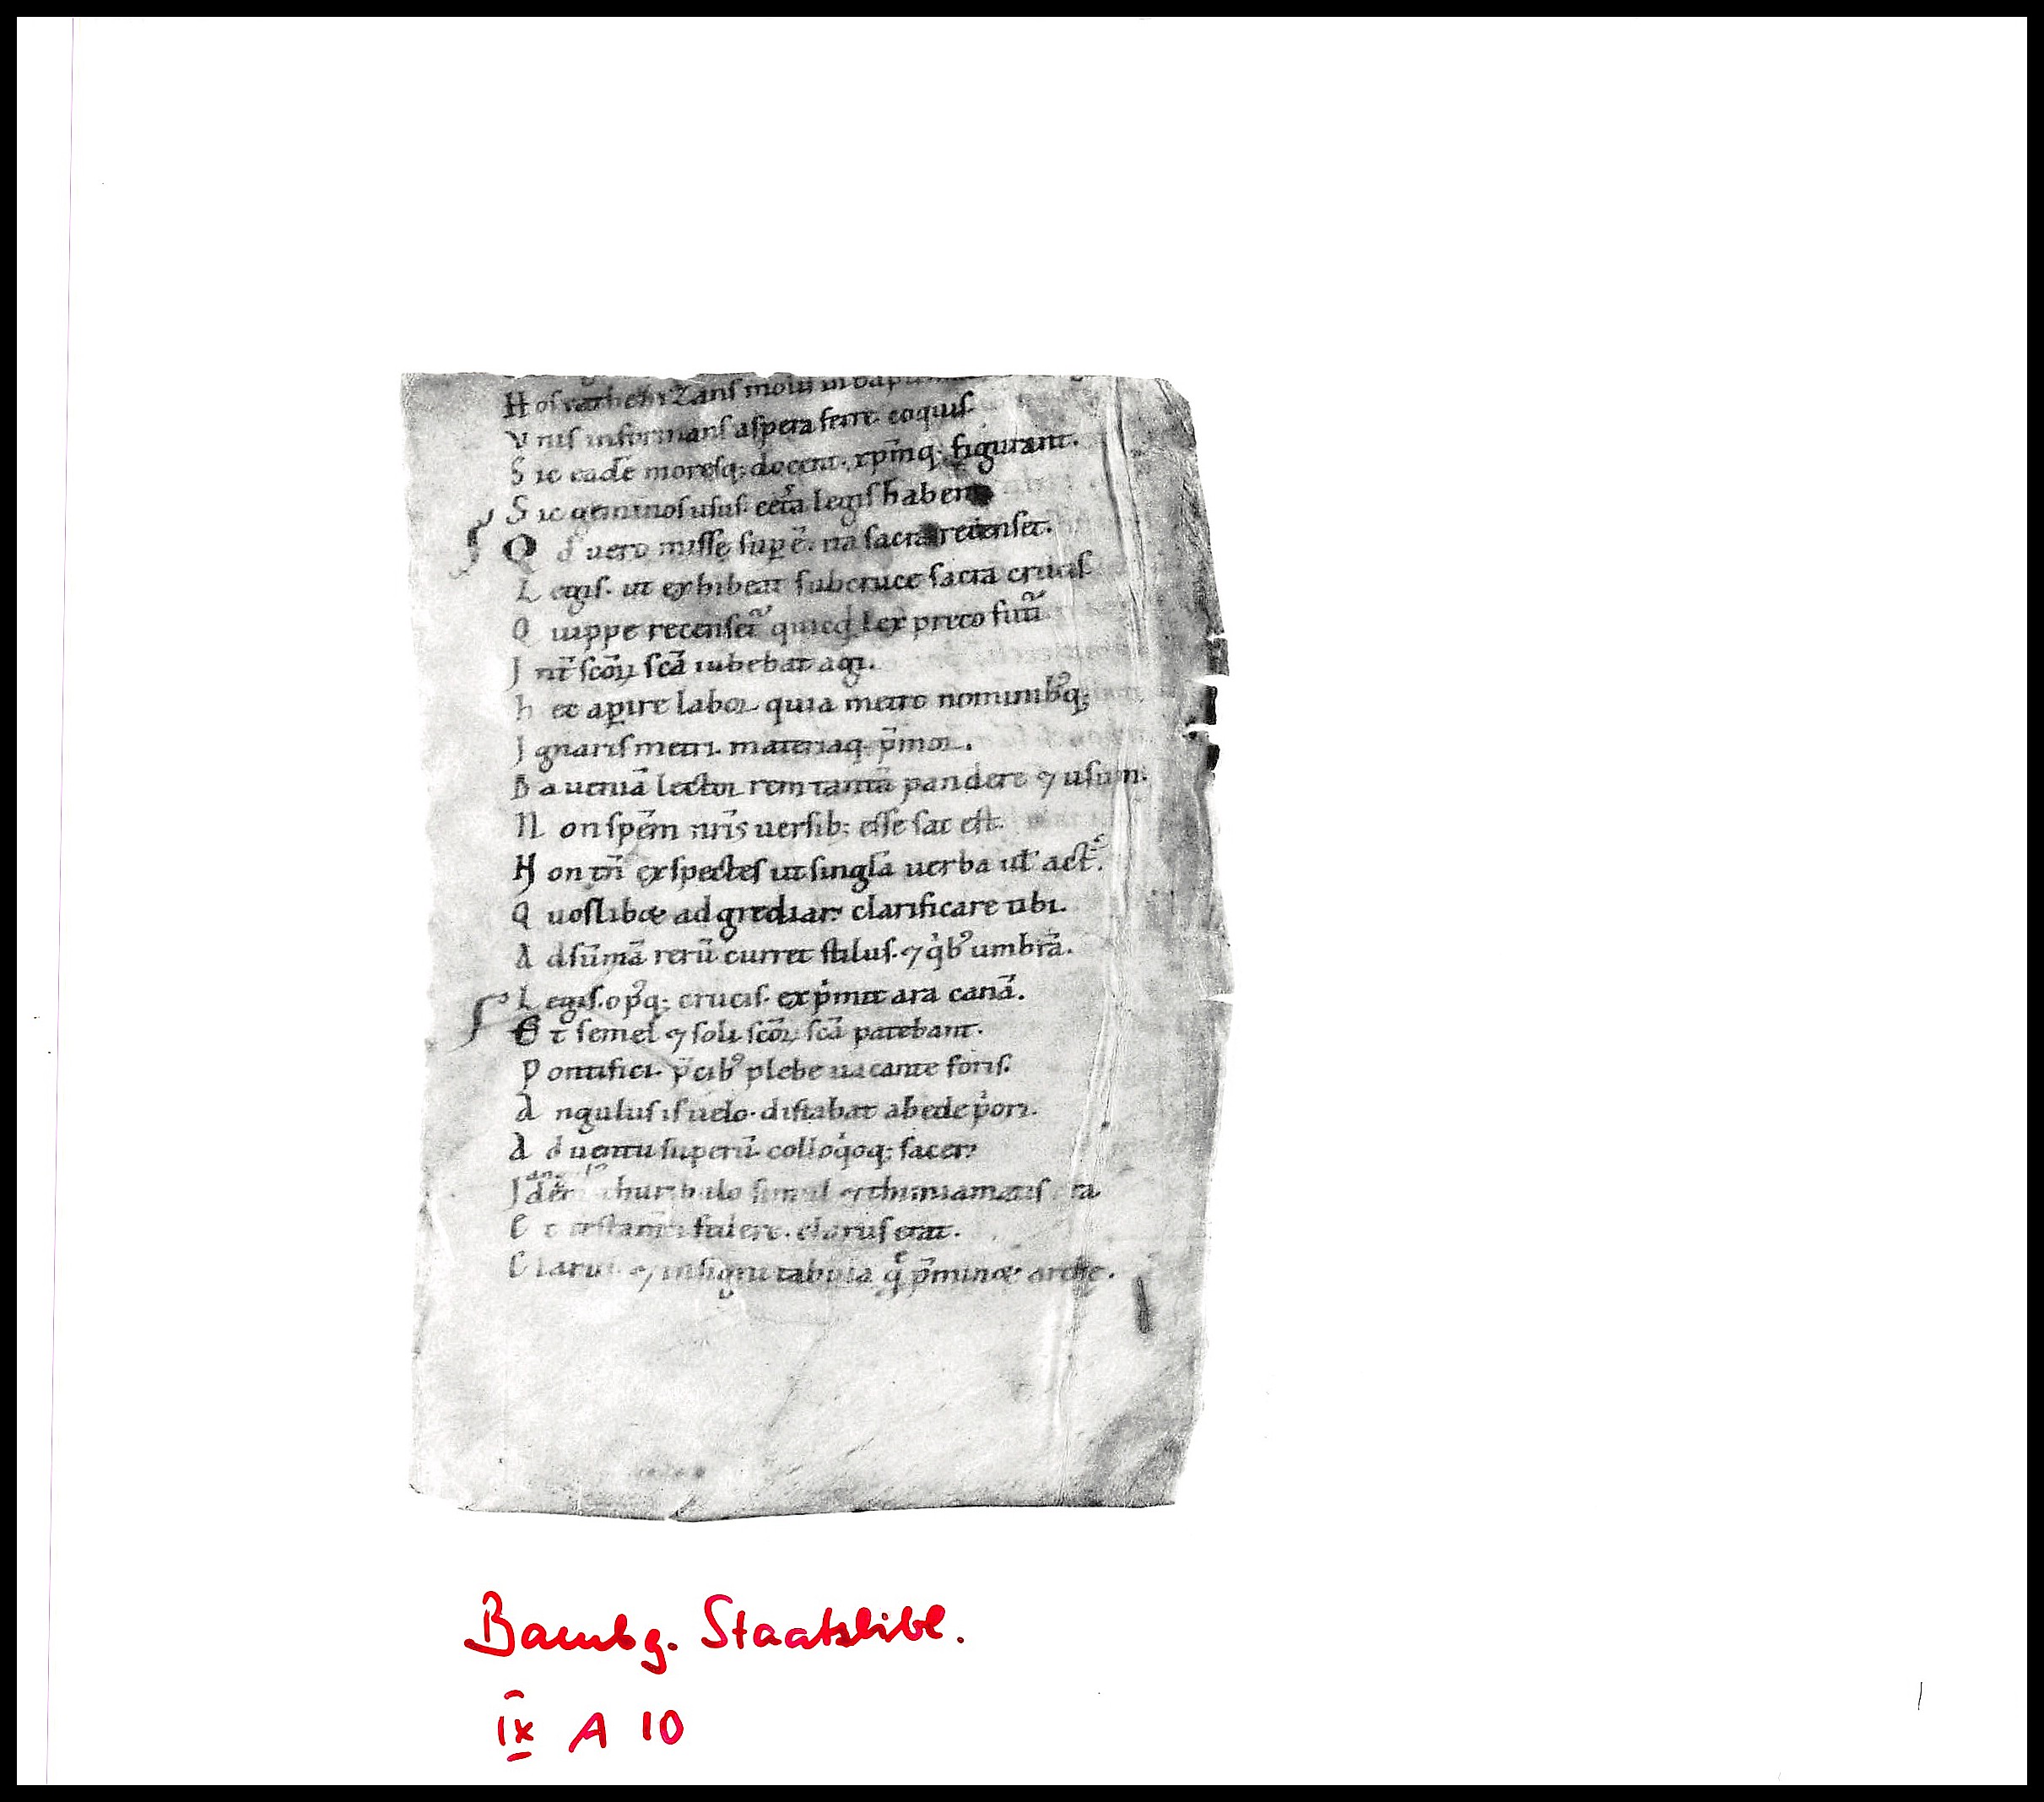 H os cathetizans mollit in bap
V nis informans aspera ferre. coquis.
S ic eadē moresq; docent. xp̄mq; figurant.
S ic geminos usus. cet͛a legis haben
Q đ uero missę suꝑē. ita sacra recenset.
L egis. ut exhibeat sub cruce sacra crucis.
Q uippe recenset᷑ quicq̇d lex preco futuri
J nt̄ scōꝝ scā iubebat agi.
h ec aꝑire labor quia metro nominibꝰq;
J gnaris metri. materiaq; p̄mor.
D a ueniā lector rem tantā pandere ⁊ usum.
N on spēm nr̄is uersib; esse sat est.
N on tn̄ exspectes ut singla uerba ul̄ act᷑.
Q uoslibet adgrediar clarificare tibi.
A d sūmā rerū curret stilus. ⁊ q̇bꝰ umbrā.
L egis. opꝰq; crucis. exp̍mit ara canā.
E t semel ⁊ soli scōꝝ scā patebant.
P ontifici. p̄cibꝰ plebe uacante foris.
A ngulus is uelo. distabat ab ede p̍ori.
A d uentu superū. colloq̍oq; sacer.
J dem thuribulo simul ⁊ thimiamatis ara
E t testam̄ti federe. clarus erat.
C larus ⁊ insigni tabula q̄ p̄minet arche.
Bambg. Staatsbibl.
IX A 10